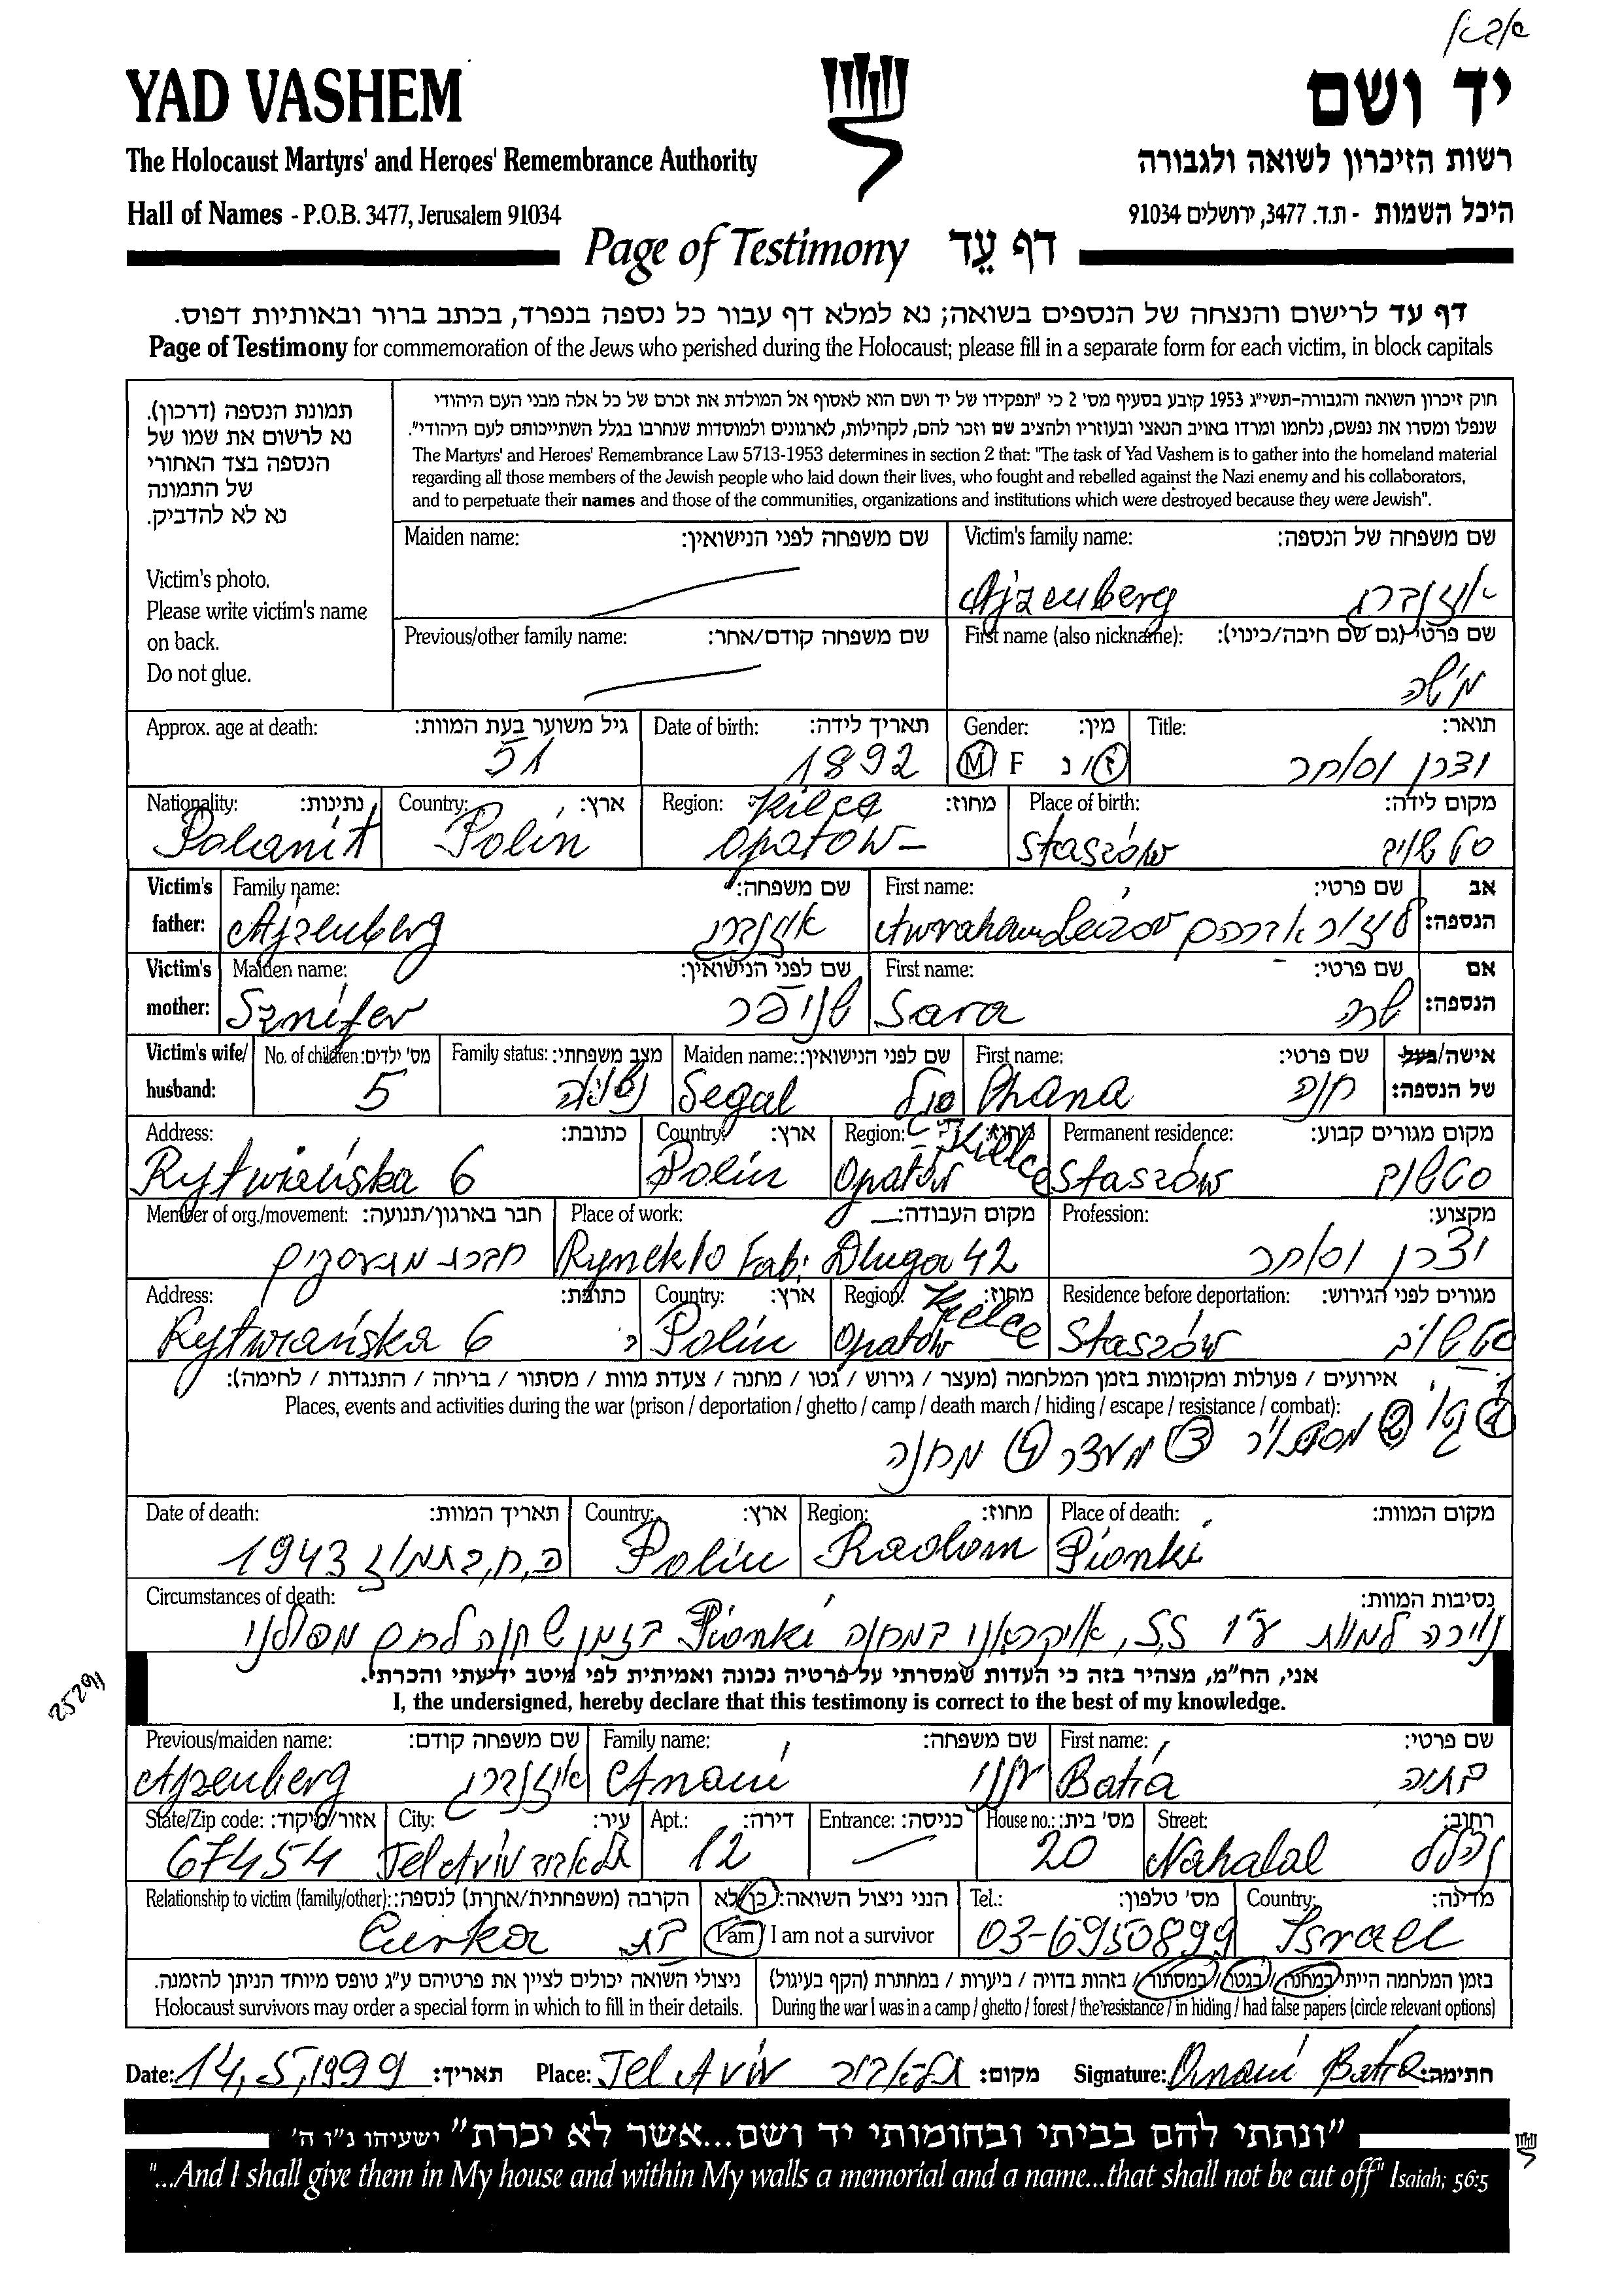 אבא
YAD VASHEM יד ושם
The Holocaust Martyrs' and Heroes' Remembrance Authority רשות הזיכרון לשואה ולגבורה
Hall of Names - P.O.B. 3477, Jerusalem 91034 היכל השמות - ת.ד. 3477, ירושלים 91034
Page of Testimony דף עֵד
דף עד לרישום והנצחה של הנספים בשואה; נא למלא דף עבור כל נספה בנפרד, בכתב ברור ובאותיות דפוס.
Page of Testimony for commemoration of the Jews who perished during the Holocaust; please fill in a separate form for each victim, in block capitals
תמונת הנספה (דרכון).
נא לרשום את שמו של
הנספה בצד האחורי
של התמונה
נא לא להדביק.
Victim's photo.
Please write victim's name
on back.
Do not glue.
חוק זיכרון השואה והגבורה-תשי"ג 1953 קובע בסעיף מס' 2 כי "תפקידו של יד ושם הוא לאסוף אל המולדת את זכרם של כל אלה מבני העם היהודי
שנפלו ומסרו את נפשם, נלחמו ומרדו באויב הנאצי ובעוזריו ולהציב שם וזכר להם, לקהילות, לארגונים ולמוסדות שנחרבו בגלל השתייכותם לעם היהודי".
The Martyrs' and Heroes' Remembrance Law 5713-1953 determines in section 2 that: "The task of Yad Vashem is to gather into the homeland material
regarding all those members of the Jewish people who laid down their lives, who fought and rebelled against the Nazi enemy and his collaborators,
and to perpetuate their names and those of the communities, organizations and institutions which were destroyed because they were Jewish".
Maiden name: שם משפחה לפני הנישואין: Victim's family name: שם משפחה של הנספה:
Ajzenberg אייזנברג
Previous/other family name: שם משפחה קודם/אחר: First name (also nickname): שם פרטי (גם שם חיבה/כינוי):
משה
Approx. age at death: גיל משוער בעת המוות: Date of birth: תאריך לידה: Gender: מין: Title: תואר:
51 1892 M F ז / נ יצרן וסוחר
Nationality: נתינות: Country: ארץ: Region: מחוז: Place of birth: מקום לידה:
Polanit Polin Kilce Opatow- Staszów סטשוב
Victim's father: Family name: שם משפחה: First name: שם פרטי: אב הנספה:
Ajzenberg אייזנברג Awraham Leizor אברהם
Victim's mother: Maiden name: שם לפני הנישואין: First name: שם פרטי: אם הנספה:
Sznifer שניפר Sara שרה
Victim's wife/ husband: No. of children: מס' ילדים: Family status: מצב משפחתי: Maiden name: שם לפני הנישואין: First name: שם פרטי: אישה/בעל של הנספה:
5 נשוי Segal סגל Chana חנה
Address: כתובת: Country: ארץ: Region: מחוז: Permanent residence: מקום מגורים קבוע:
Rytwiańska 6 Polin Opatów Kielce Staszów סטשוב
Member of org./movement: חבר בארגון/תנועה: Place of work: מקום העבודה: Profession: מקצוע:
Rynek 10 Fab: Dluga 42 יצרן וסוחר
Address: כתובת: Country: ארץ: Region: מחוז: Residence before deportation: מגורים לפני הגירוש:
Rytwiańska 6 Polin Opatów Kielce Staszów סטשוב
אירועים / פעולות ומקומות בזמן המלחמה (מעצר / גירוש / גטו / מחנה / צעדת מוות / מסתור / בריחה / התנגדות / לחימה):
Places, events and activities during the war (prison / deportation / ghetto / camp / death march / hiding / escape / resistance / combat):
1 גטו 2 מסתור 3 מעצר 4 מחנה
Date of death: תאריך המוות: Country: ארץ: Region: מחוז: Place of death: מקום המוות:
בתמוז 1943 Polin Radom Pionki
Circumstances of death: נסיבות המוות:
נורה למוות ע"י S.S, אוקראני במחנה Pionki בזמן
אני, הח"מ, מצהיר בזה כי העדות שמסרתי על פרטיה נכונה ואמיתית לפי מיטב ידיעתי והכרתי.
I, the undersigned, hereby declare that this testimony is correct to the best of my knowledge.
25291
Previous/maiden name: שם משפחה קודם: Family name: שם משפחה: First name: שם פרטי:
Ajzenberg אייזנברג Amani Batia בתיה
State/Zip code: אזור/מיקוד: City: עיר: Apt.: דירה: Entrance: כניסה: House no.: מס' בית: Street: רחוב:
67454 Tel Aviv תל אביב 12 20 Nahalal נהלל
Relationship to victim (family/other): הקרבה (משפחתית/אחרת) לנספה: הנני ניצול השואה: כן/לא Tel.: מס' טלפון: Country: מדינה:
Curka בת I am I am not a survivor 03-6950899 Israel
ניצולי השואה יכולים לציין את פרטיהם ע"ג טופס מיוחד הניתן להזמנה. בזמן המלחמה הייתי במחנה / בגטו / במסתור / בזהות בדויה / ביערות / במחתרת (הקף בעיגול)
Holocaust survivors may order a special form in which to fill in their details. During the war I was in a camp / ghetto / forest / the resistance / in hiding / had false papers (circle relevant options)
Date: 14,5,1999 תאריך: Place: Tel Aviv תל אביב מקום: Signature: Amani Batia חתימה:
"ונתתי להם בביתי ובחומותי יד ושם...אשר לא יכרת" ישעיהו נ"ו ה'
"...And I shall give them in My house and within My walls a memorial and a name...that shall not be cut off" Isaiah; 56:5